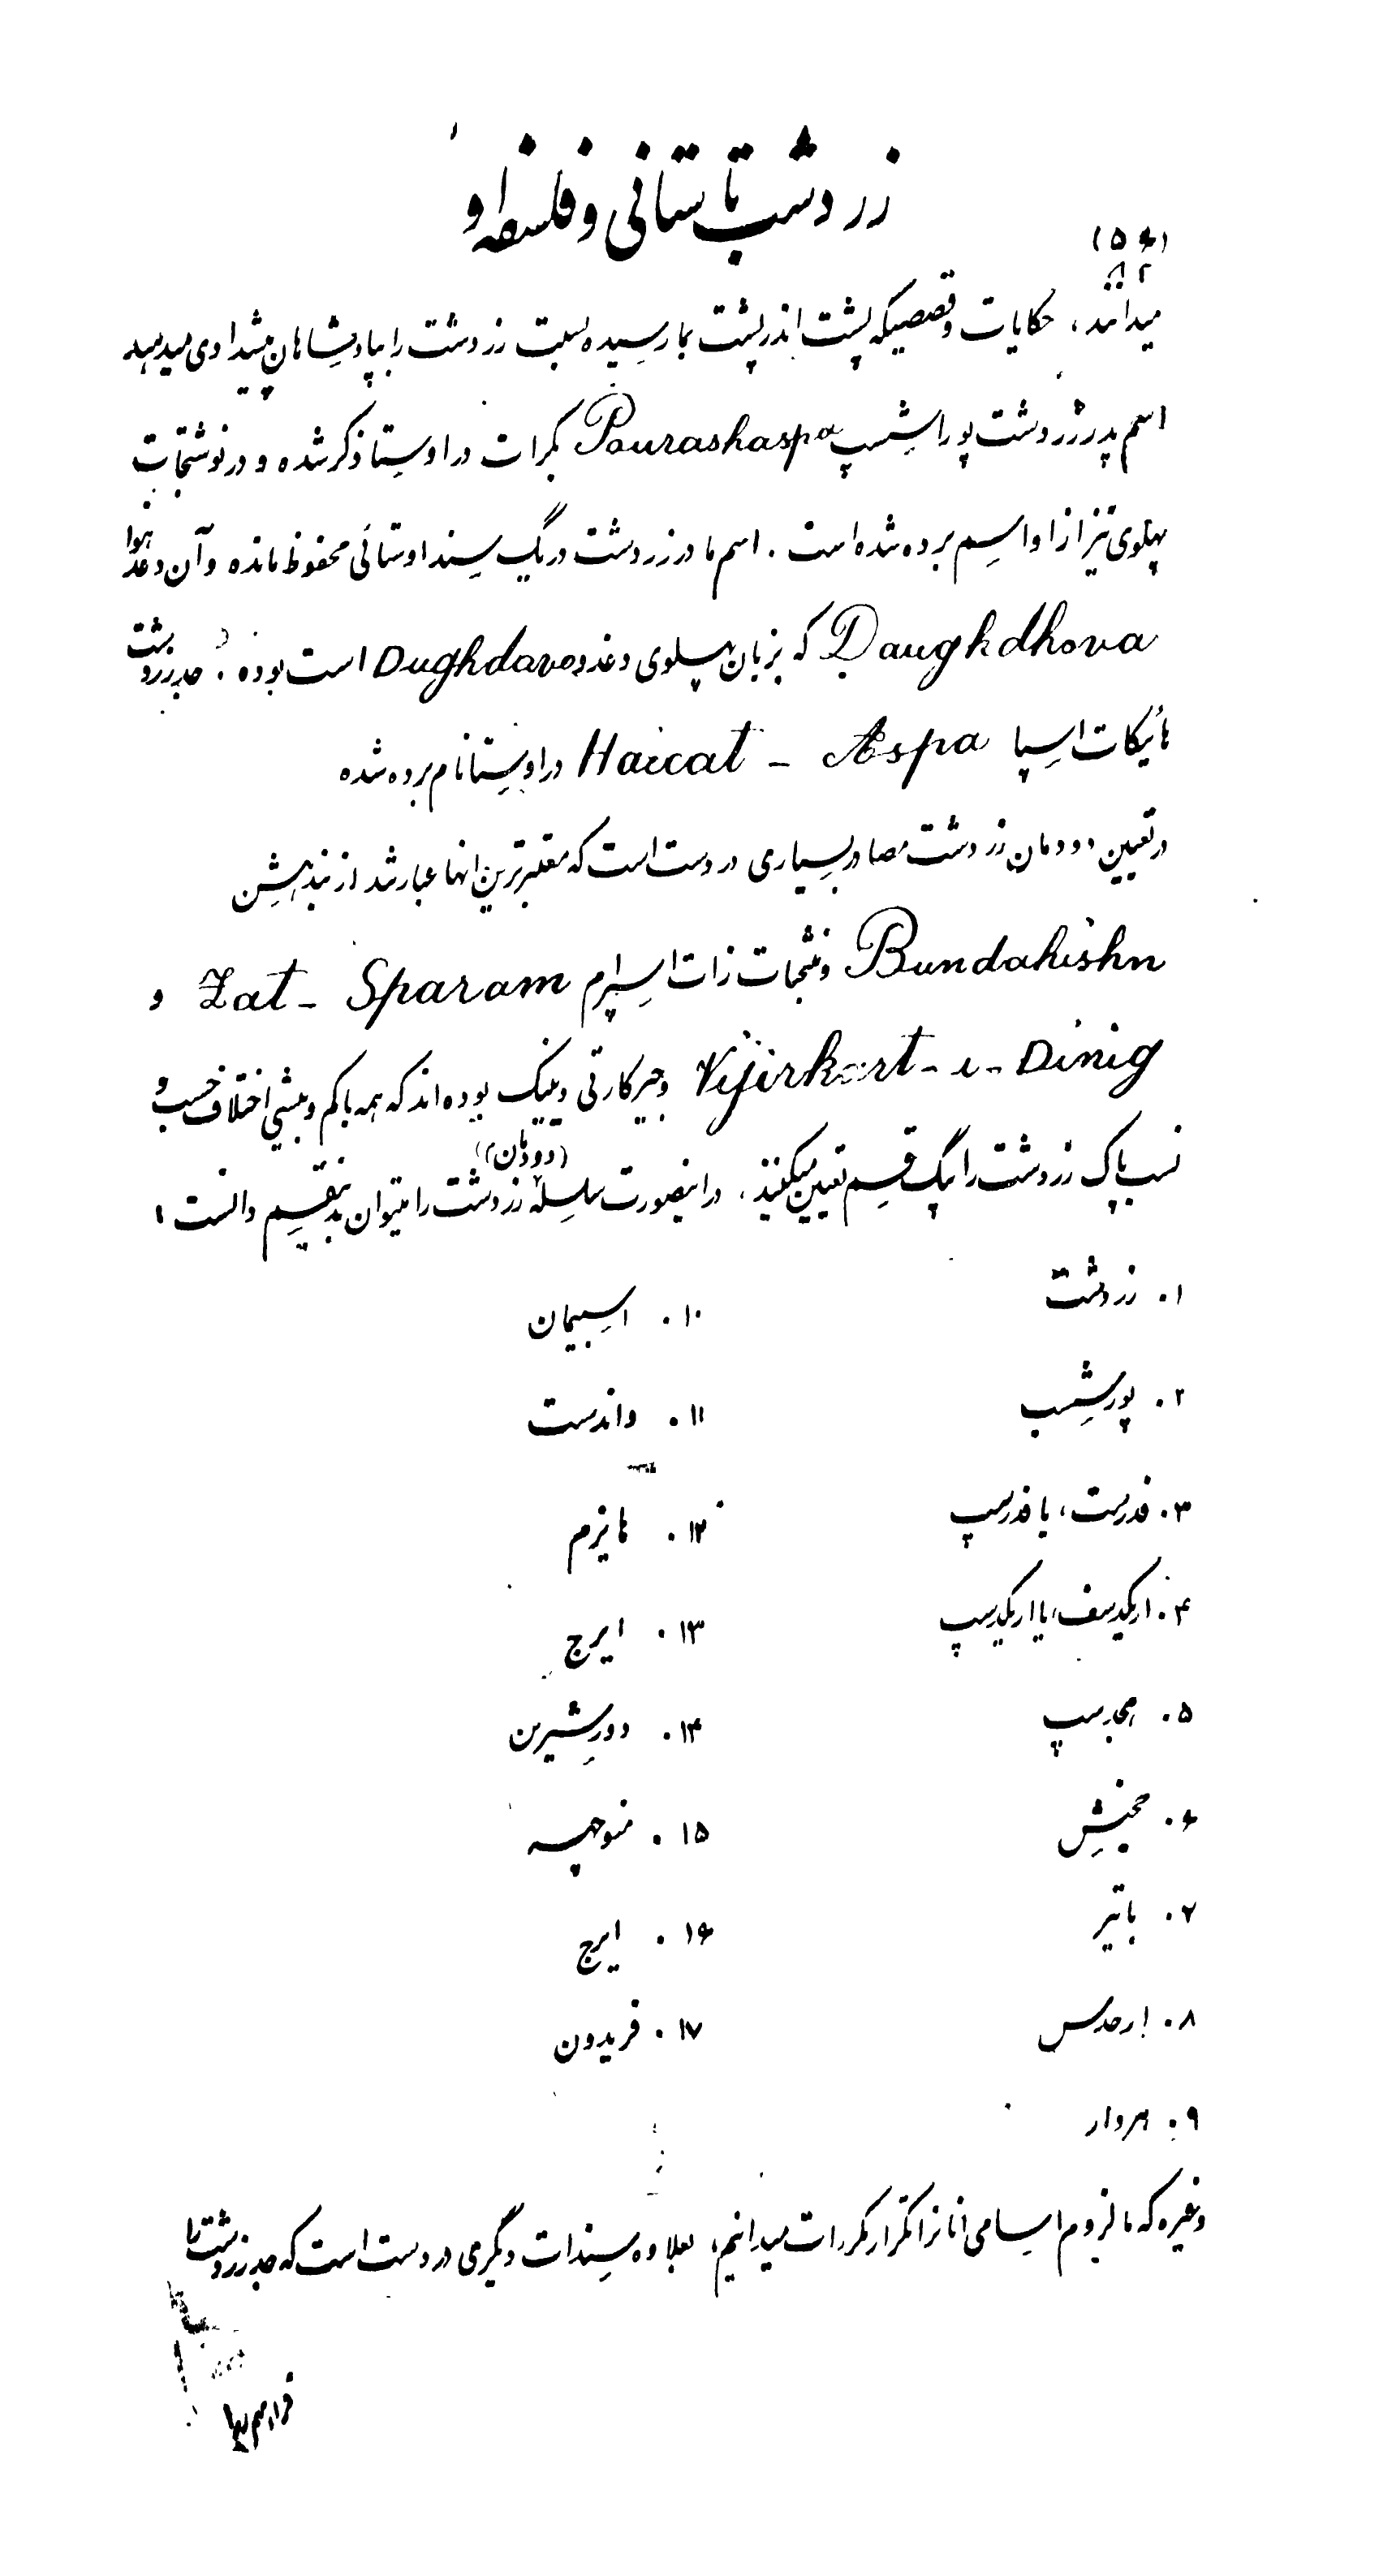 زردشت باستانی و فلسفه او
(۵۶)
۸۲
میدانند، حکایات و قصصیکه پشت اندر پشت بما رسیده نسبت زردشت را بپادشاهان پیشدادی میدهد
اسم پدر زردشت پوراشسپ Pourashaspa بکرات در اوستا ذکر شده و در نوشتجات
پهلوی نیز از او اسم برده شده است . اسم مادر زردشت در یک سند اوستائی محفوظ مانده و آن دغدهوا
Daughdhova که بزبان پهلوی دغدو Dughdavo است بوده . جد زردشت
هائیکات اسپا Haicat - Aspa در اوستا نام برده شده
در تعیین دودمان زردشت مصادر بسیاری در دست است که معتبرترین انها عبارتند از بندهشن
Bundahishn و منتخبات زات اسپرم Zat - Sparam و
Vijirkart - i - Dinig وجیرکارتی دینیک بوده اند که همه با کم و بیشی اختلاف حسب و
نسب پاک زردشت را بیک قسم تعیین میکنند، در اینصورت سلسله (دودمان) زردشت را میتوان بدینقسم دانست :
۱. زردشت
۲. پورشسب
۳. فدرست، یا فدرسپ
۴. اریکدسف، یا اریکدسپ
۵. هجدسپ
۶. جخنش
۷. باتیر
۸. ارحدس
۹. هردار
۱۰. اسبیمان
۱۱. واندست
۱۲. هایزم
۱۳. ایرج
۱۴. دورشیرین
۱۵. منوچهر
۱۶. ایرج
۱۷. فریدون
وغیره که ما لزوم اسامی انانرا تکرار مکررات میدانیم، بعلاوه سندات دیگری در دست است که جد زردشت را